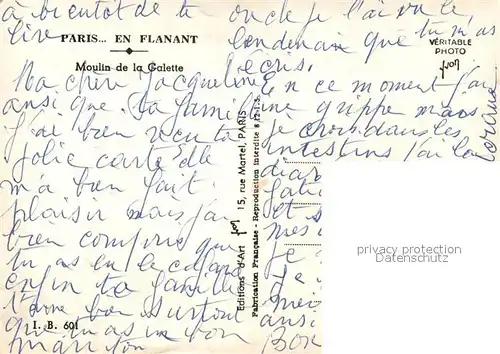 à bientôt de te
lire
PARIS... EN FLANANT
Moulin de la Galette
Ma chère Jacqueline
ainsi que ta famille
j'ai bien recu ta
jolie carte Elle
m a bien fait
plaisir mais j'ai
bien compris que
tu as eu le cafard
enfin ta famille
t'aime bon surtout
que tu as un bon
mari ton
I. B. 601
oncle je l'ai vu le
lendemain que tu m'as
ecris.
VÉRITABLE
PHOTO
yvon
En ce moment j'ai
une grippe mais
je crois dans les
intestins j'ai la
et
mes
je
je
ainsi
bon
Editions d'Art yvon 15, rue Martel, PARIS
Fabrication Française - Reproduction interdite
privacy protection
Datenschutz